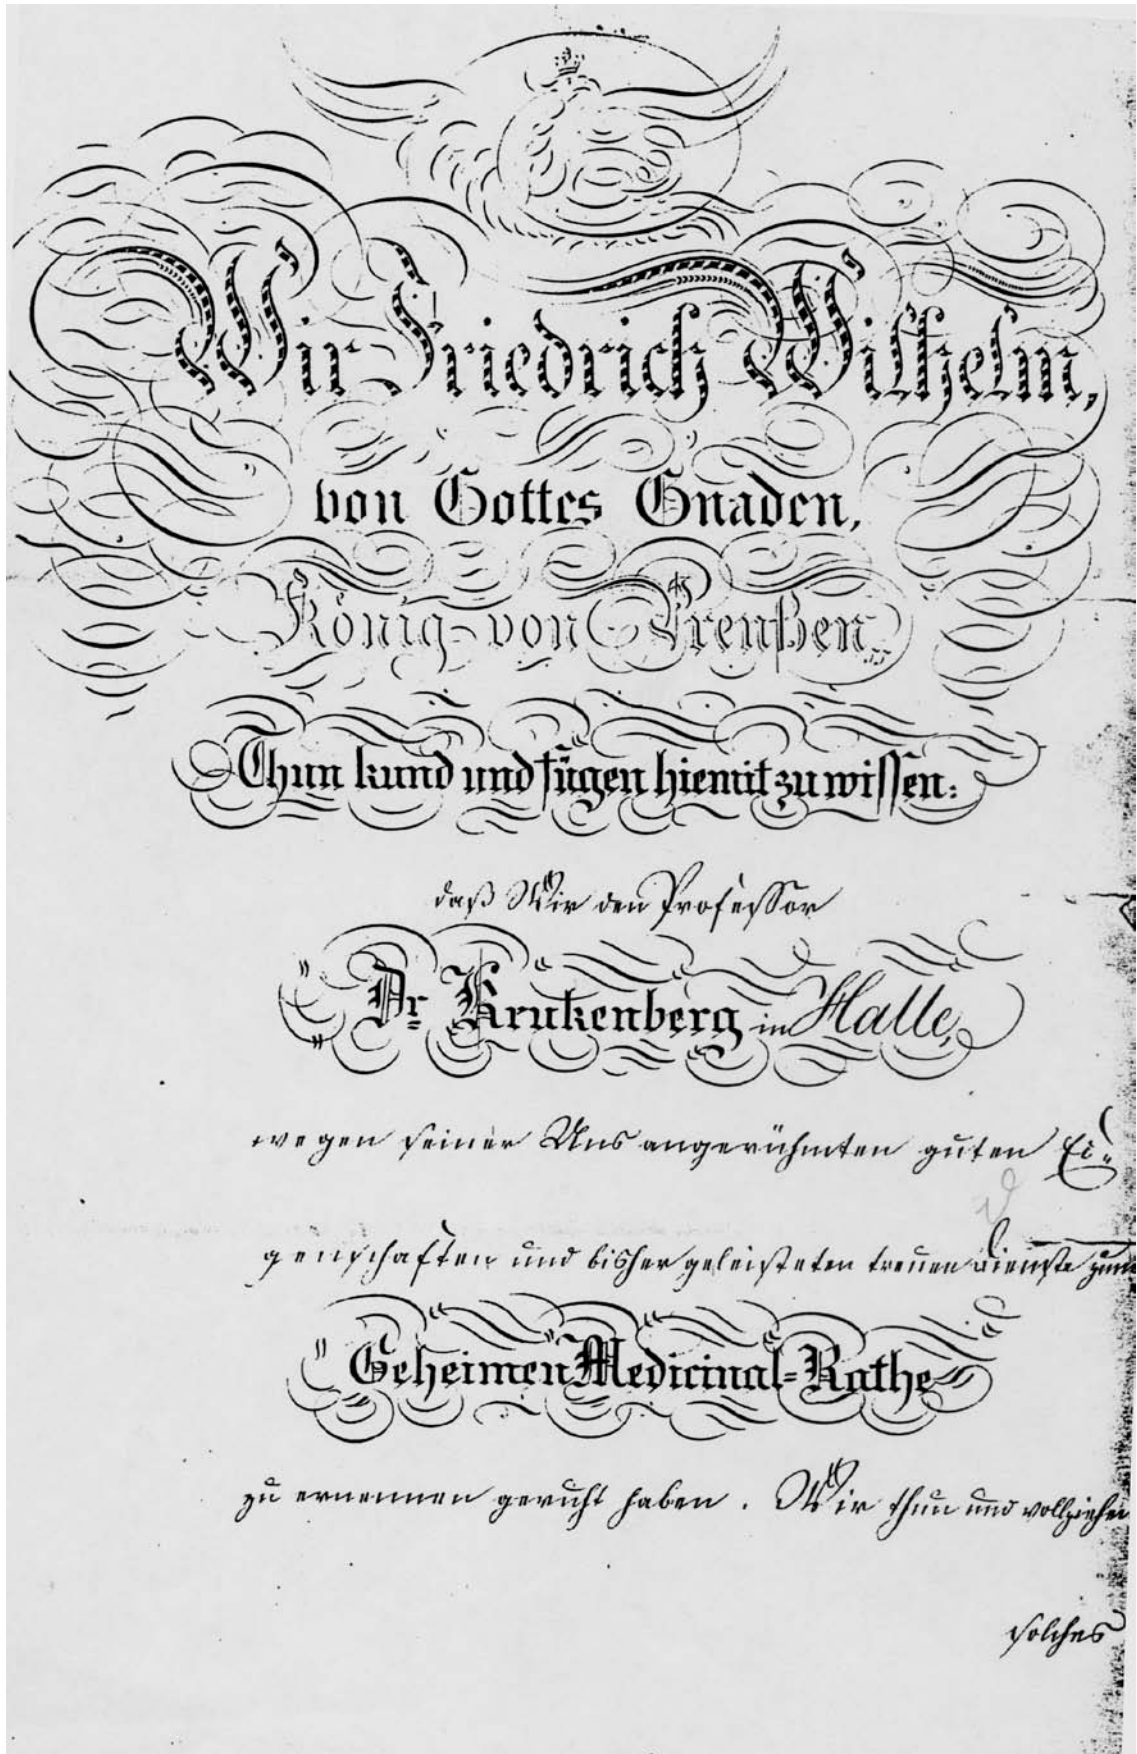 Wir Friedrich Wilhelm,
von Gottes Gnaden,
König von Preußen
Thun kund und fügen hiemit zu wissen:
daß Wir den Professor
Dr Krukenberg in Halle,
wegen seiner Uns angerühmten guten Ei-
genschaften und bisher geleisteten treuen Dienste zum
Geheimen Medicinal-Rathe
zu ernennen geruht haben. Wir thun und vollziehen
solches